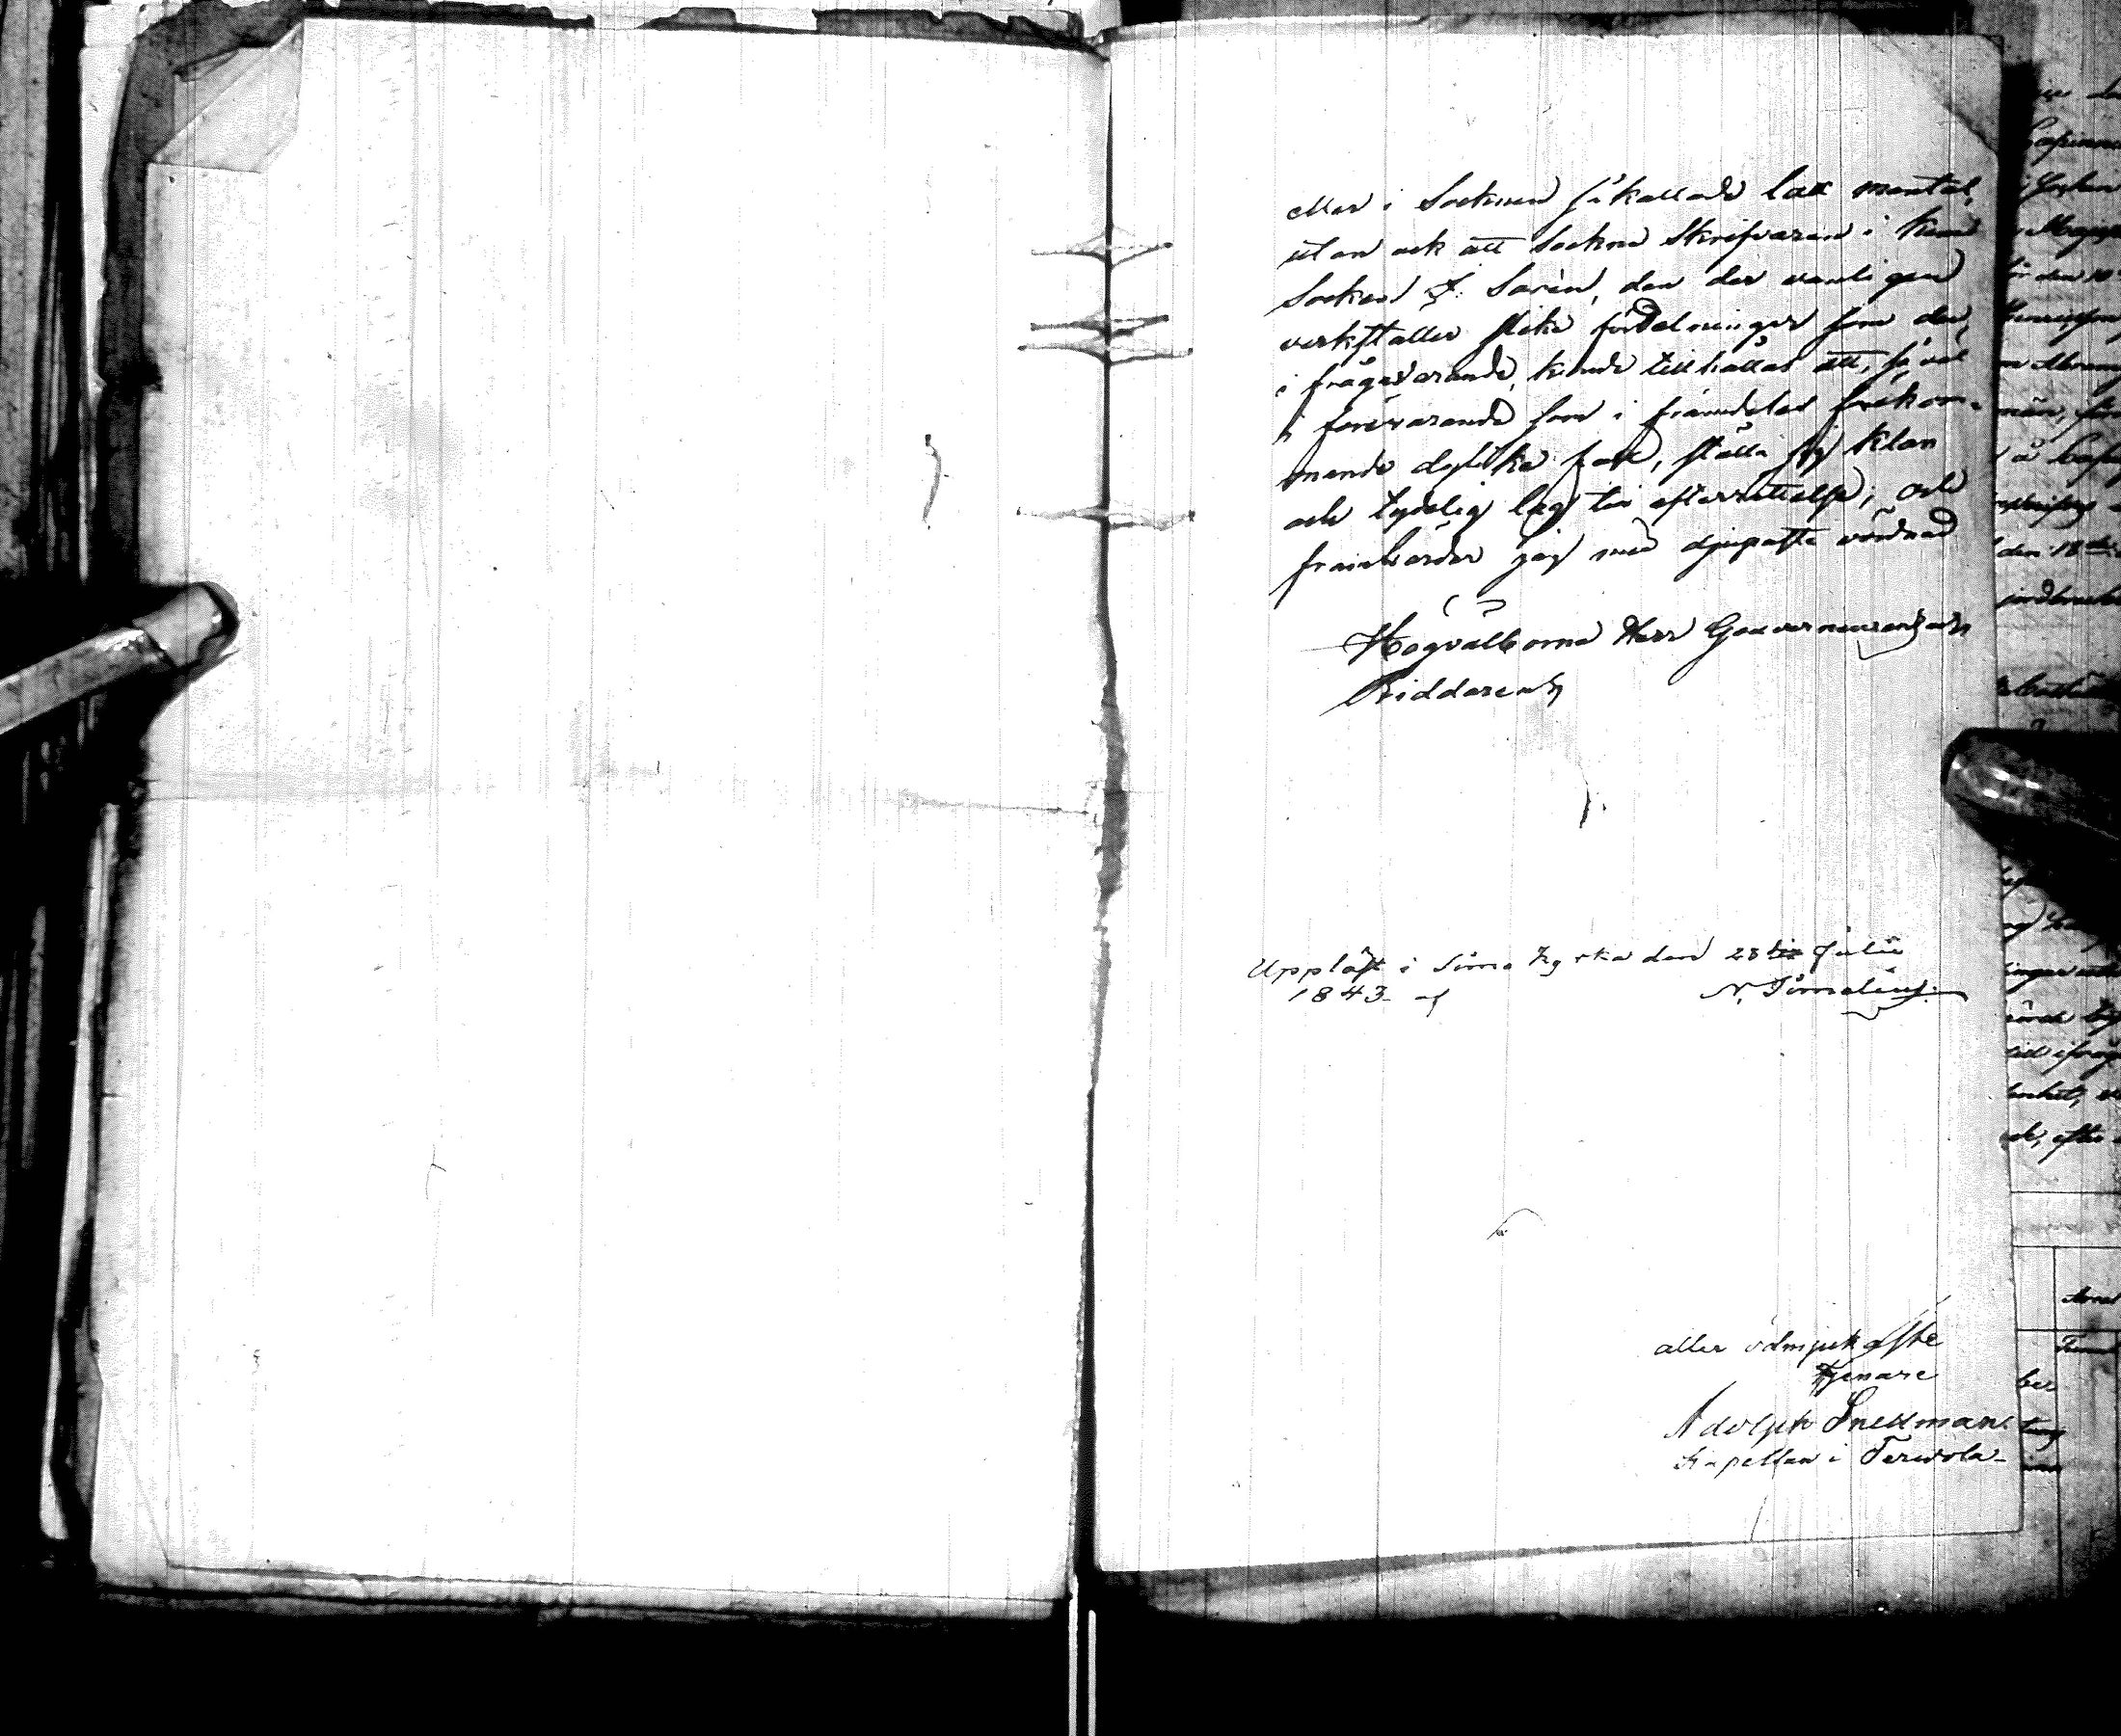 eller i Socknen så kallade lax mantal,
utan ock att Sockne Skrifvaren i Kemi
Socken J. Savèn, den der vanligen
verkställer slike fördelningar som den,
i frågavarande, kunde tillhållas att, så väl
i förevarande som i framdeles förekom-
mande dylika fall, ställa sig klar
och tydelig lag till efterrättelse; och
framhärdar jag med djupaste vördnad
Högvälborne Herr Gouverneurens och
Riddarens
Uppläst i Simo Kyrka den 23 die Julii
1843 af N. Simelius.
aller ödmjukaste
tjenare
Adolph Snellman
Kapellan i Terwola